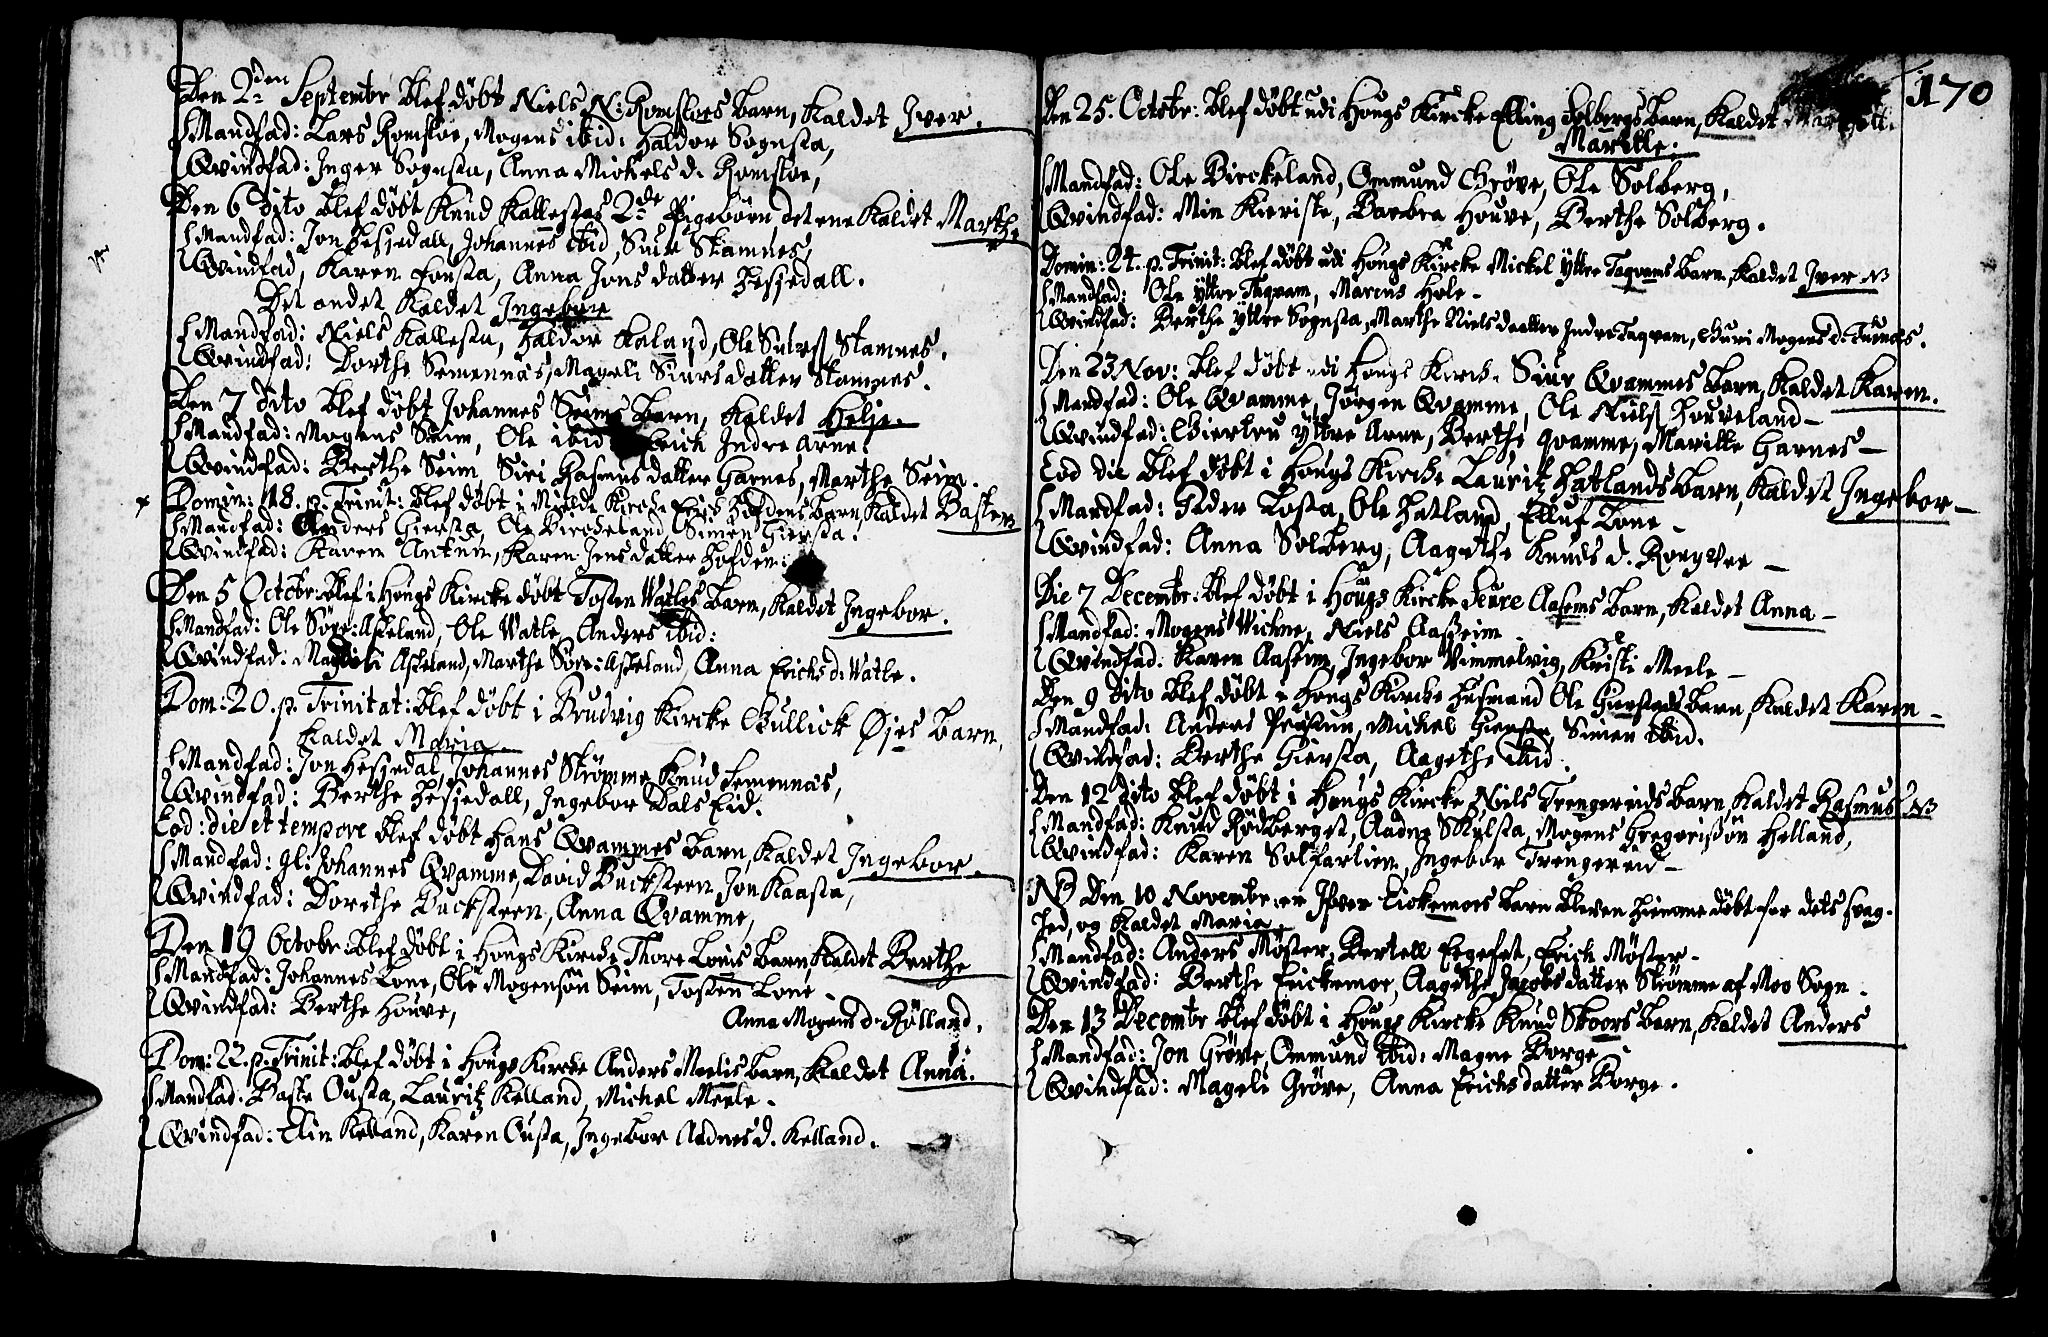 Den 2den Septembr blef döbt Niels N: Romsloes barn, kaldet Iver.
Mandfad: Lars Romsloe, Mogens ibid: Haldor Sognsta,
Qvindfad: Inger Sognsta, Anna Mickels d. Romsloe,
Den 6 Dito blef döbt Knud Kallestas 2de Pigebörn, det ene kaldet Marthe
Mandfad: Jon Hesjedall, Johannes ibid, Siur Stamnes,
Qvindfad, Karen Fonsta, Anna Jons datter Hesjedall.
Det andet kaldet Ingebor
Mandfad: Niels Kallesta, Haldor Kaland, Ole Stamnes.
Qvindfad: Dorthe Semennäs, Mageli Siursdatter Stamnes.
Den 7 Dito blef döbt Johannes Seims barn, kaldet Helje.
Mandfad: Mogens Seim, Ole ibid Erich Indre Arne.
Qvindfad: Berthe Seim, Siri Rasmusdatter Garnes, Marthe Seim.
Domin: 18. p. Trinit: blef döbt i Mielde Kircke Erich Höfdens barn, kaldet Basten
Mandfad: Anders Giersta, Ole Birckeland, Simen Giersta.
Qvindfad: Karen Antun, Karen Jensdatter Höfden.
Den 5 Octobr: blef i Hougs Kircke döbt Tosten Watles barn, kaldet Ingebor.
Mandfad: Ole Söre: Askeland, Ole Watle, Anders ibid:
Qvindfad: Mageli Askeland, Marthe Söre: Askeland, Anna Erichs d: Watle.
Dom: 20. p. Trinitat: blef döbt i Brudvig Kircke Gullick Øjes barn,
kaldet Maria
Mandfad: Jon Hesjedal, Johannes Strömme, Knud Semennäs,
Qvindfad: Berthe Hesjedall, Ingebor Dals Eid.
Eod: die et tempore blef döbt Hans Qvammes barn, kaldet Ingebor.
Mandfad: gl: Johannes Qvamme, David Bucksteen Jon Kaasta,
Qvindfad: Dorethe Bucksteen, Anna Qvamme,
Den 19 Octobr: blef döbt i Hougs Kircke Thore Lonis barn, kaldet Berthe
Mandfad: Johannes Lone, Ole Mogensön Seim, Tosten Lone
Qvindfad: Berthe Houve,
Anna Mogens d. Rölland.
Dom: 22. p. Trinit: blef döbt i Hougs Kircke Anders Meelis barn, kaldet Anna.
Mandfad. Baste Ousta, Lauritz Kelland, Mickel Meele.
Qvindfad: Elin Kelland, Karen Ousta, Ingebor Adnes d. Kelland.
170
Den 25. Octobr: blef döbt udi Hougs Kircke Elling Solbergs barn, kaldet
Maritte.
Mandfad: Ole Birckeland, Ommund Gröve, Ole Solberg,
Qvindfad: Min Kieriste, Barbra Houve, Berthe Solberg.
Domin: 24. p. Trinit: blef döbt udi Hougs Kircke Mickel Yttre Taqvams barn, kaldet Iver NB
Mandfad: Ole Yttre Taqvam, Marcus Hole.
Qvindfad: Berthe Yttre Sognsta, Marthe Nielsdaatter Indre Taqvam, Guri Mogens d. Tunäs.
Den 23 Nov: blef döbt udi Hougs Kircke Siur Qvammes barn, kaldet Karen.
Mandfad: Ole Qvamme, Jörgen Qvamme, Ole Niels Houveland
Qvindfad: Giertru Yttre Arne, Berthe qvamme, Maritte Garnes
Eod die blef döbt i Hougs Kircke Lauritz Hatlands barn, kaldet Ingebor
Mandfad: Peder Tosta, Ole Hatland, Elluf Lone
Qvindfad: Anna Solberg, Aagethe Knuds d. Rongvee
Die 7 Decembr: blef döbt i Hougs Kircke Seure Aasems barn, kaldet Anna
Mandfad: Mogens Wichne, Niels Aasseim
Qvindfad: Karen Aaseim, Ingebor Vimmelvig, Kristi Meele
Den 9 Dito blef döbt i Hougs Kircke Husmand Ole Gierstads barn, kaldet Karen
Mandfad: Anders Prestun, Mickel Giersta, Simen ibid.
Qvindfad: Berthe Giersta, Aagethe ibid.
Den 12 Dito blef döbt i Hougs Kircke Niels Trengereids barn, kaldet Rasmus NB
Mandfad: Knud Rödberget, Aadne Skulsta, Mogens Gregerisön Helland,
Qvindfad: Karen Solfarliem, Ingebor Trengereid
NB Den 10 Novembr: er Ifver Eickemoes barn bleven hiemme döbt for dets svag-
hed, og kaldet Maria
Mandfad: Anders Möster, Bertell Eegeset, Erich Möster
Qvindfad: Berthe Eickemoe, Aagethe Jacobsdatter Strömme af Moo Sogn.
Den 13 Decembr blef döbt i Hougs Kircke Knud Skoors barn, kaldet Anders
Mandfad: Jon Gröve, Ommund ibid: Magne Borge
Qvindfad: Mageli Gröve, Anna Erichsdatter Borge.